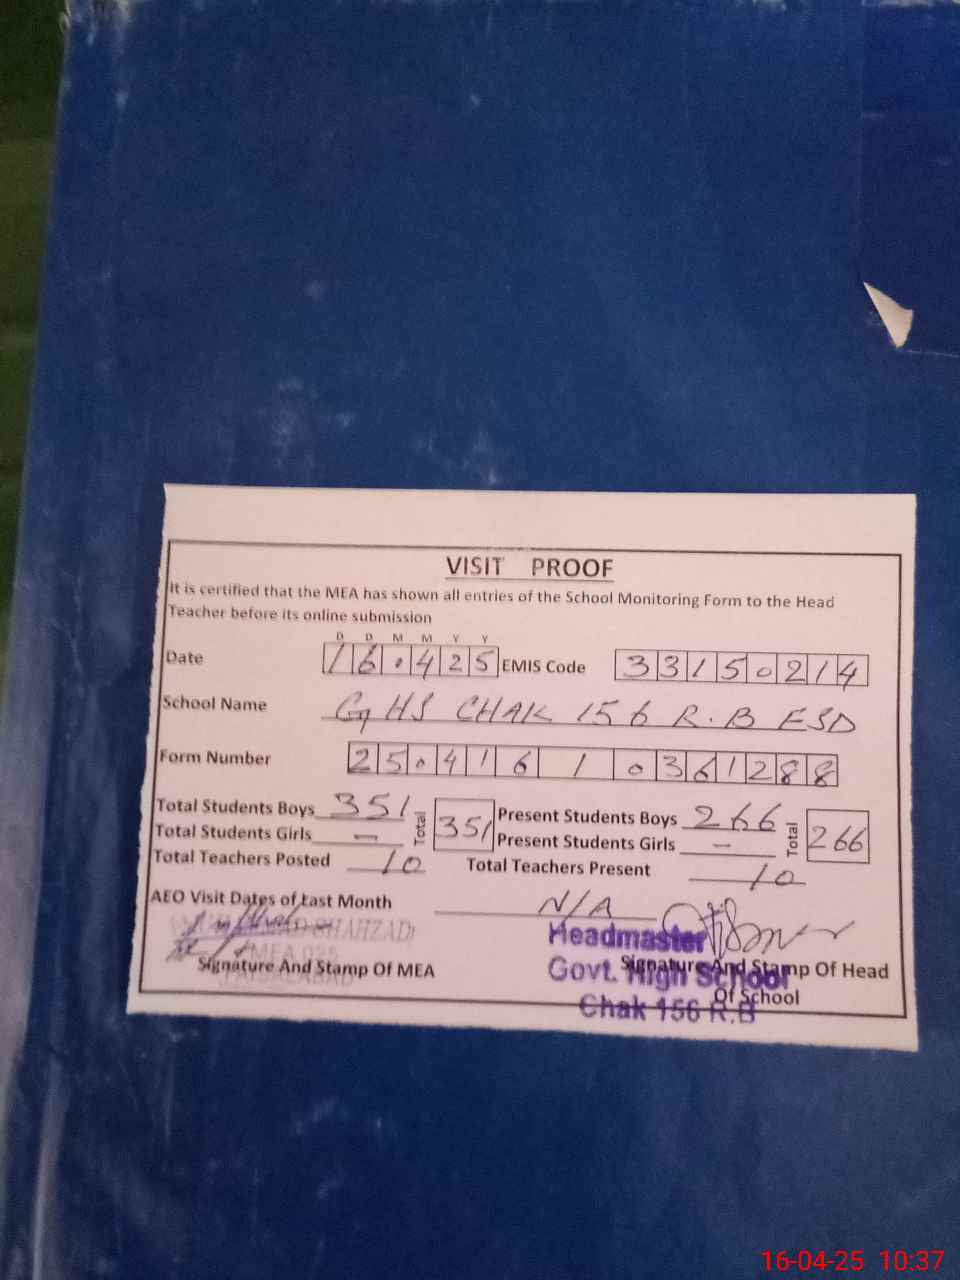 VISIT PROOF
It is certified that the MEA has shown all entries of the School Monitoring Form to the Head
Teacher before its online submission
D D M M Y Y
Date 16.425 EMIS Code 33150214
School Name GHS CHAK 156 R.B FSD
Form Number 25.41610361288
Total Students Boys 351 Total 351 Present Students Boys 266 Total 266
Total Students Girls — Present Students Girls —
Total Teachers Posted 10 Total Teachers Present 10
AEO Visit Dates of Last Month N/A
SHAHZAD
MEA 035
FAISALABAD
Signature And Stamp Of MEA
Headmaster
Govt. High School
Chak 156 R.B
Signature And Stamp Of Head
Of School
16-04-25 10:37